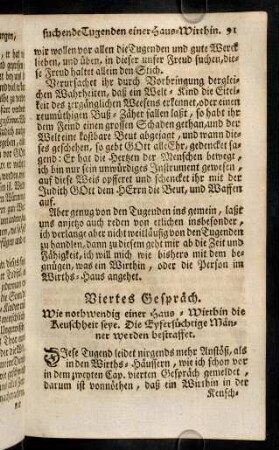 suchende Tugenden einer Haus-Wirthin. 91
wir wollen vor allen die Tugenden und gute Werck
lieben, und üben, in dieser unser Freud suchen, die-
se Freud haltet allein den Stich.
Verursachet ihr durch Vorbringung dergleic-
hen Wahrheiten, daß ein Welt-Kind die Eitelk-
eit des zergänglichen Weesens erkennet, oder einen
reumüthigen Buß-Zäher fallen laßt, so habt ihr
dem Feind einen grossen Schaden gethan, und der
Welt eine kostbare Beut abgejagt, und wann die-
ses geschehen, so gebt GOtt alle Ehr, gedencket sa-
gend: Er hat die Hertzen der Menschen bewegt,
ich bin nur sein unwürdiges Instrument gewesen,
auf diese Weis opfferet und schencket ihr mit der
Judith GOtt dem HErrn die Beut, und Waffen
auf.
Aber genug von den Tugenden ins gemein, laßt
uns anjetzo auch reden von etlichen insbesonder,
ich verlange aber nicht weitläufig von den Tugenden
zu handlen, dann zu diesem geht mir ab die Zeit und
Fähigkeit, ich will mich wie bishero mit dem be-
gnügen, was ein Wirthin, oder die Person im
Wirths-Haus angehet.
Viertes Gespräch.
Wie nothwendig einer Haus-Wirthin die
Keuschheit seye. Die Eyfersüchtige Män-
ner werden bestraffet.
DIese Tugend leidet nirgends mehr Anstöß, als
in den Wirths-Häussern, wie ich schon vor
in dem zweyten Cap. vierten Gespräch gemeldet,
darum ist vonnöthen, daß ein Wirthin in der
Keusch-